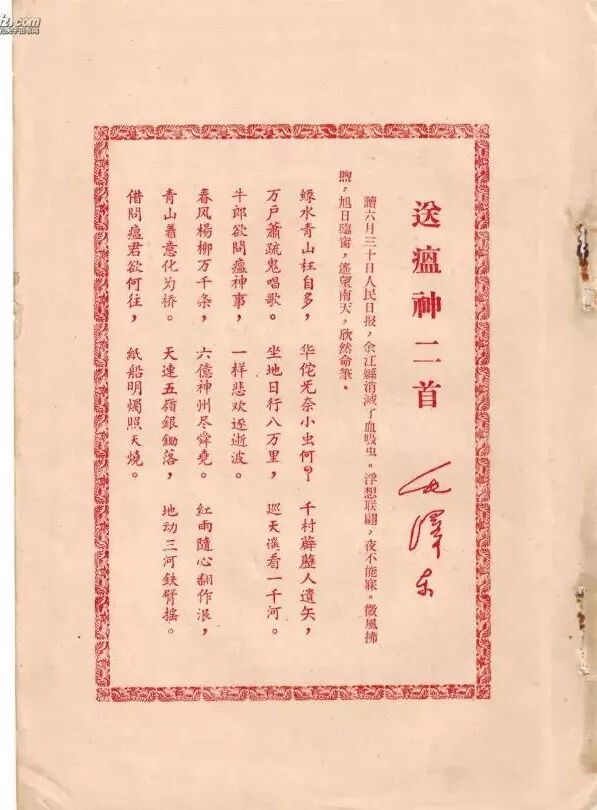 送瘟神二首
毛澤东
讀六月三十日人民日报，余江縣消滅了血吸虫。浮想联翩，夜不能寐。微風拂
煦，旭日臨窗，遙望南天，欣然命筆。
綠水青山枉自多，华佗无奈小虫何？千村薜藶人遺矢，
万戶蕭疏鬼唱歌。坐地日行八万里，巡天遙看一千河。
牛郎欲問瘟神事，一样悲欢逐逝波。
春风楊柳万千条，六億神州尽舜堯。紅雨隨心翻作浪，
青山着意化为桥。天連五嶺銀鋤落，地动三河鉄臂搖。
借問瘟君欲何往，紙船明燭照天燒。